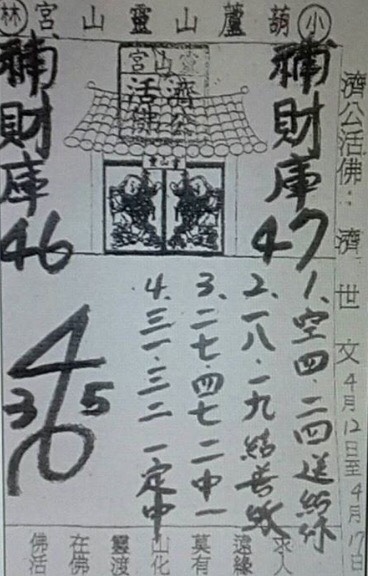 小葫蘆山靈山宮林
濟公活佛:濟世文 4月12日至4月17日
補財庫
47
濟公
活佛
補財庫
46
1、空四·二四送給你
2、一八·一九結善緣
3、二七·四七二中一
4、三一·三二一定中
4
3 5
6
佛在靈山莫遠求
活佛渡化有緣人